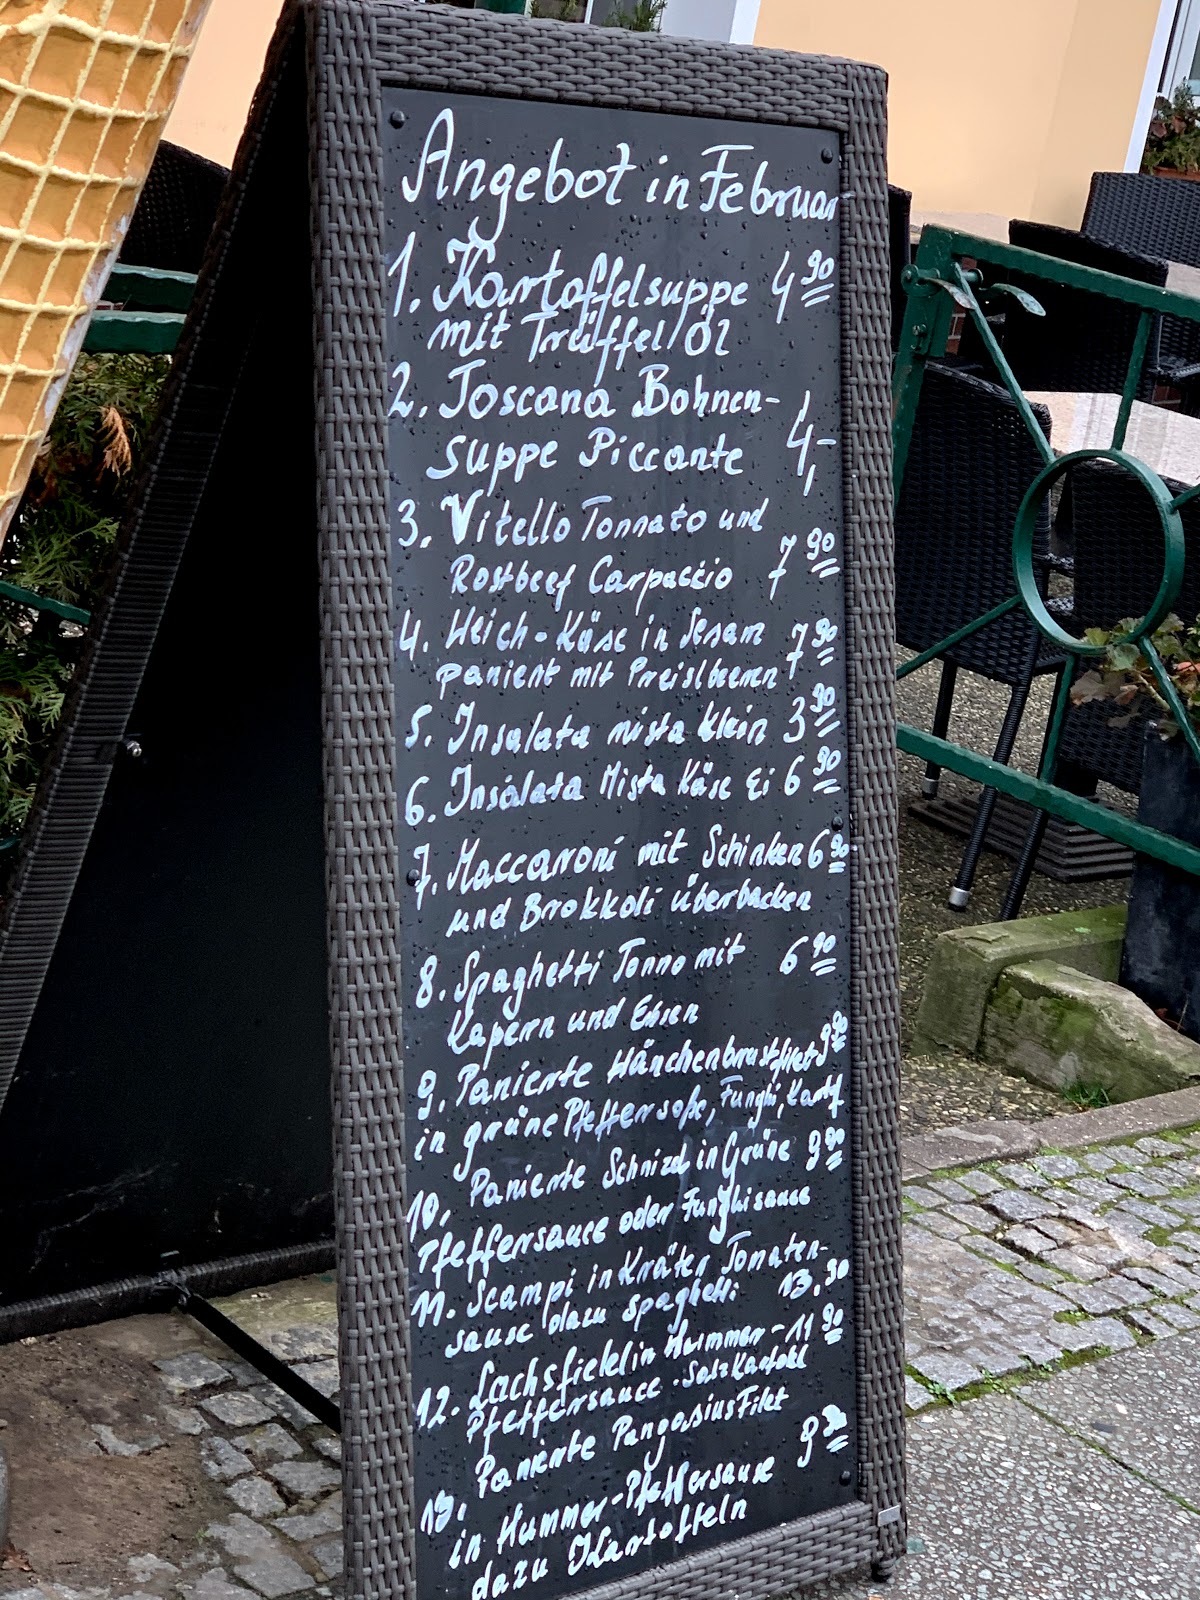 Angebot in Februar
1. Kartoffelsuppe 4 90
mit Trüffel Öl
2. Toscana Bohnen-
suppe Piccante 4,-
3. Vitello Tonnato und
Rostbeef Carpaccio 7 90
4. Weich-Käse in Sesam 7 90
paniert mit Preislbeeren
5. Insalata mista klein 3 90
6. Insalata Mista Käse Ei 6 90
7. Maccaroni mit Schinken 6 90
und Brokkoli überbacken
8. Spaghetti Tonno mit 6 90
Kapern und Erbsen
9. Panierte Hänchenbrustfilet 9 90
in grüne Pfeffersoße, Funghi, Kartf
10. Panierte Schnizel in Grüne 9 90
Pfeffersauce oder Funghisauce
11. Scampi in Kräter Tomaten-
sause dazu spaghetti 13,90
12. Lachsfielel in Hummer- 11 90
Pfeffersauce. Salzkartofel
13. Panierte Pangasius Filet
in Hummer-Pfeffersause 9 90
dazu Kartoffeln